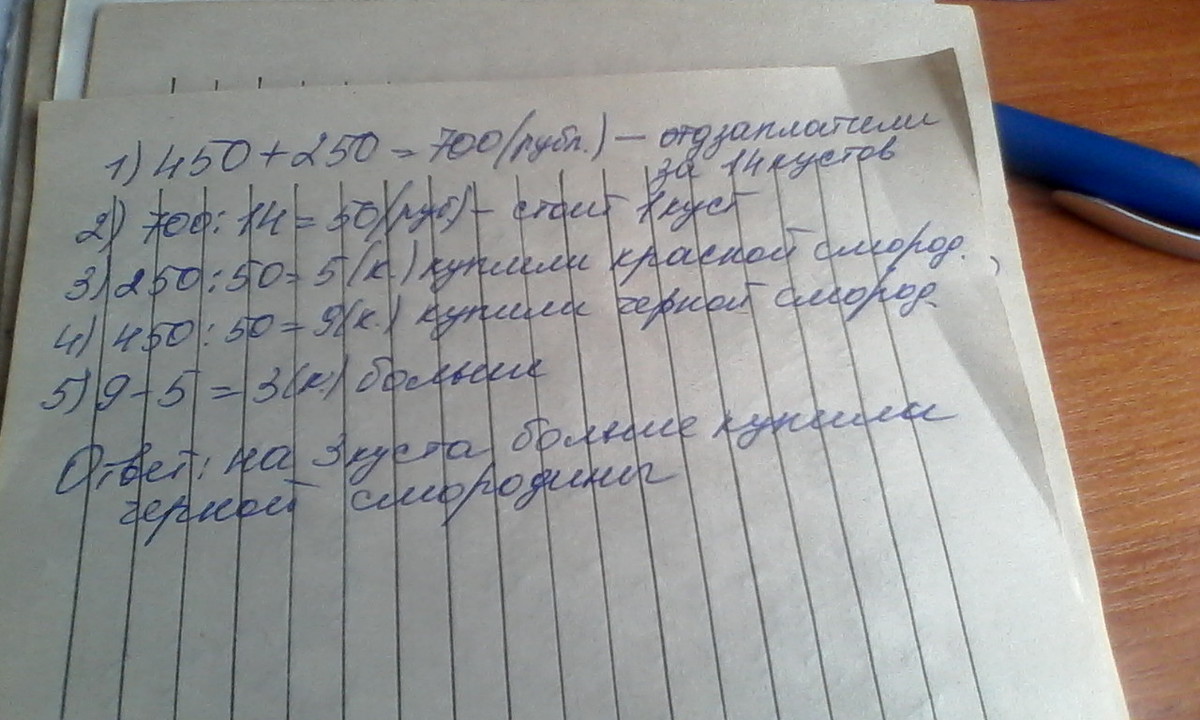 1) 450 + 250 = 700 (рубл.) — заплатили
за 14 кустов
2) 700 : 14 = 50 (руб) - стоит 1 куст
3) 250 : 50 = 5 (к.) купили красной смород.
4) 450 : 50 = 9 (к.) купили черной смород.
5) 9 - 5 = 3 (к.) больше
Ответ: на 3 куста больше купили
черной смородины